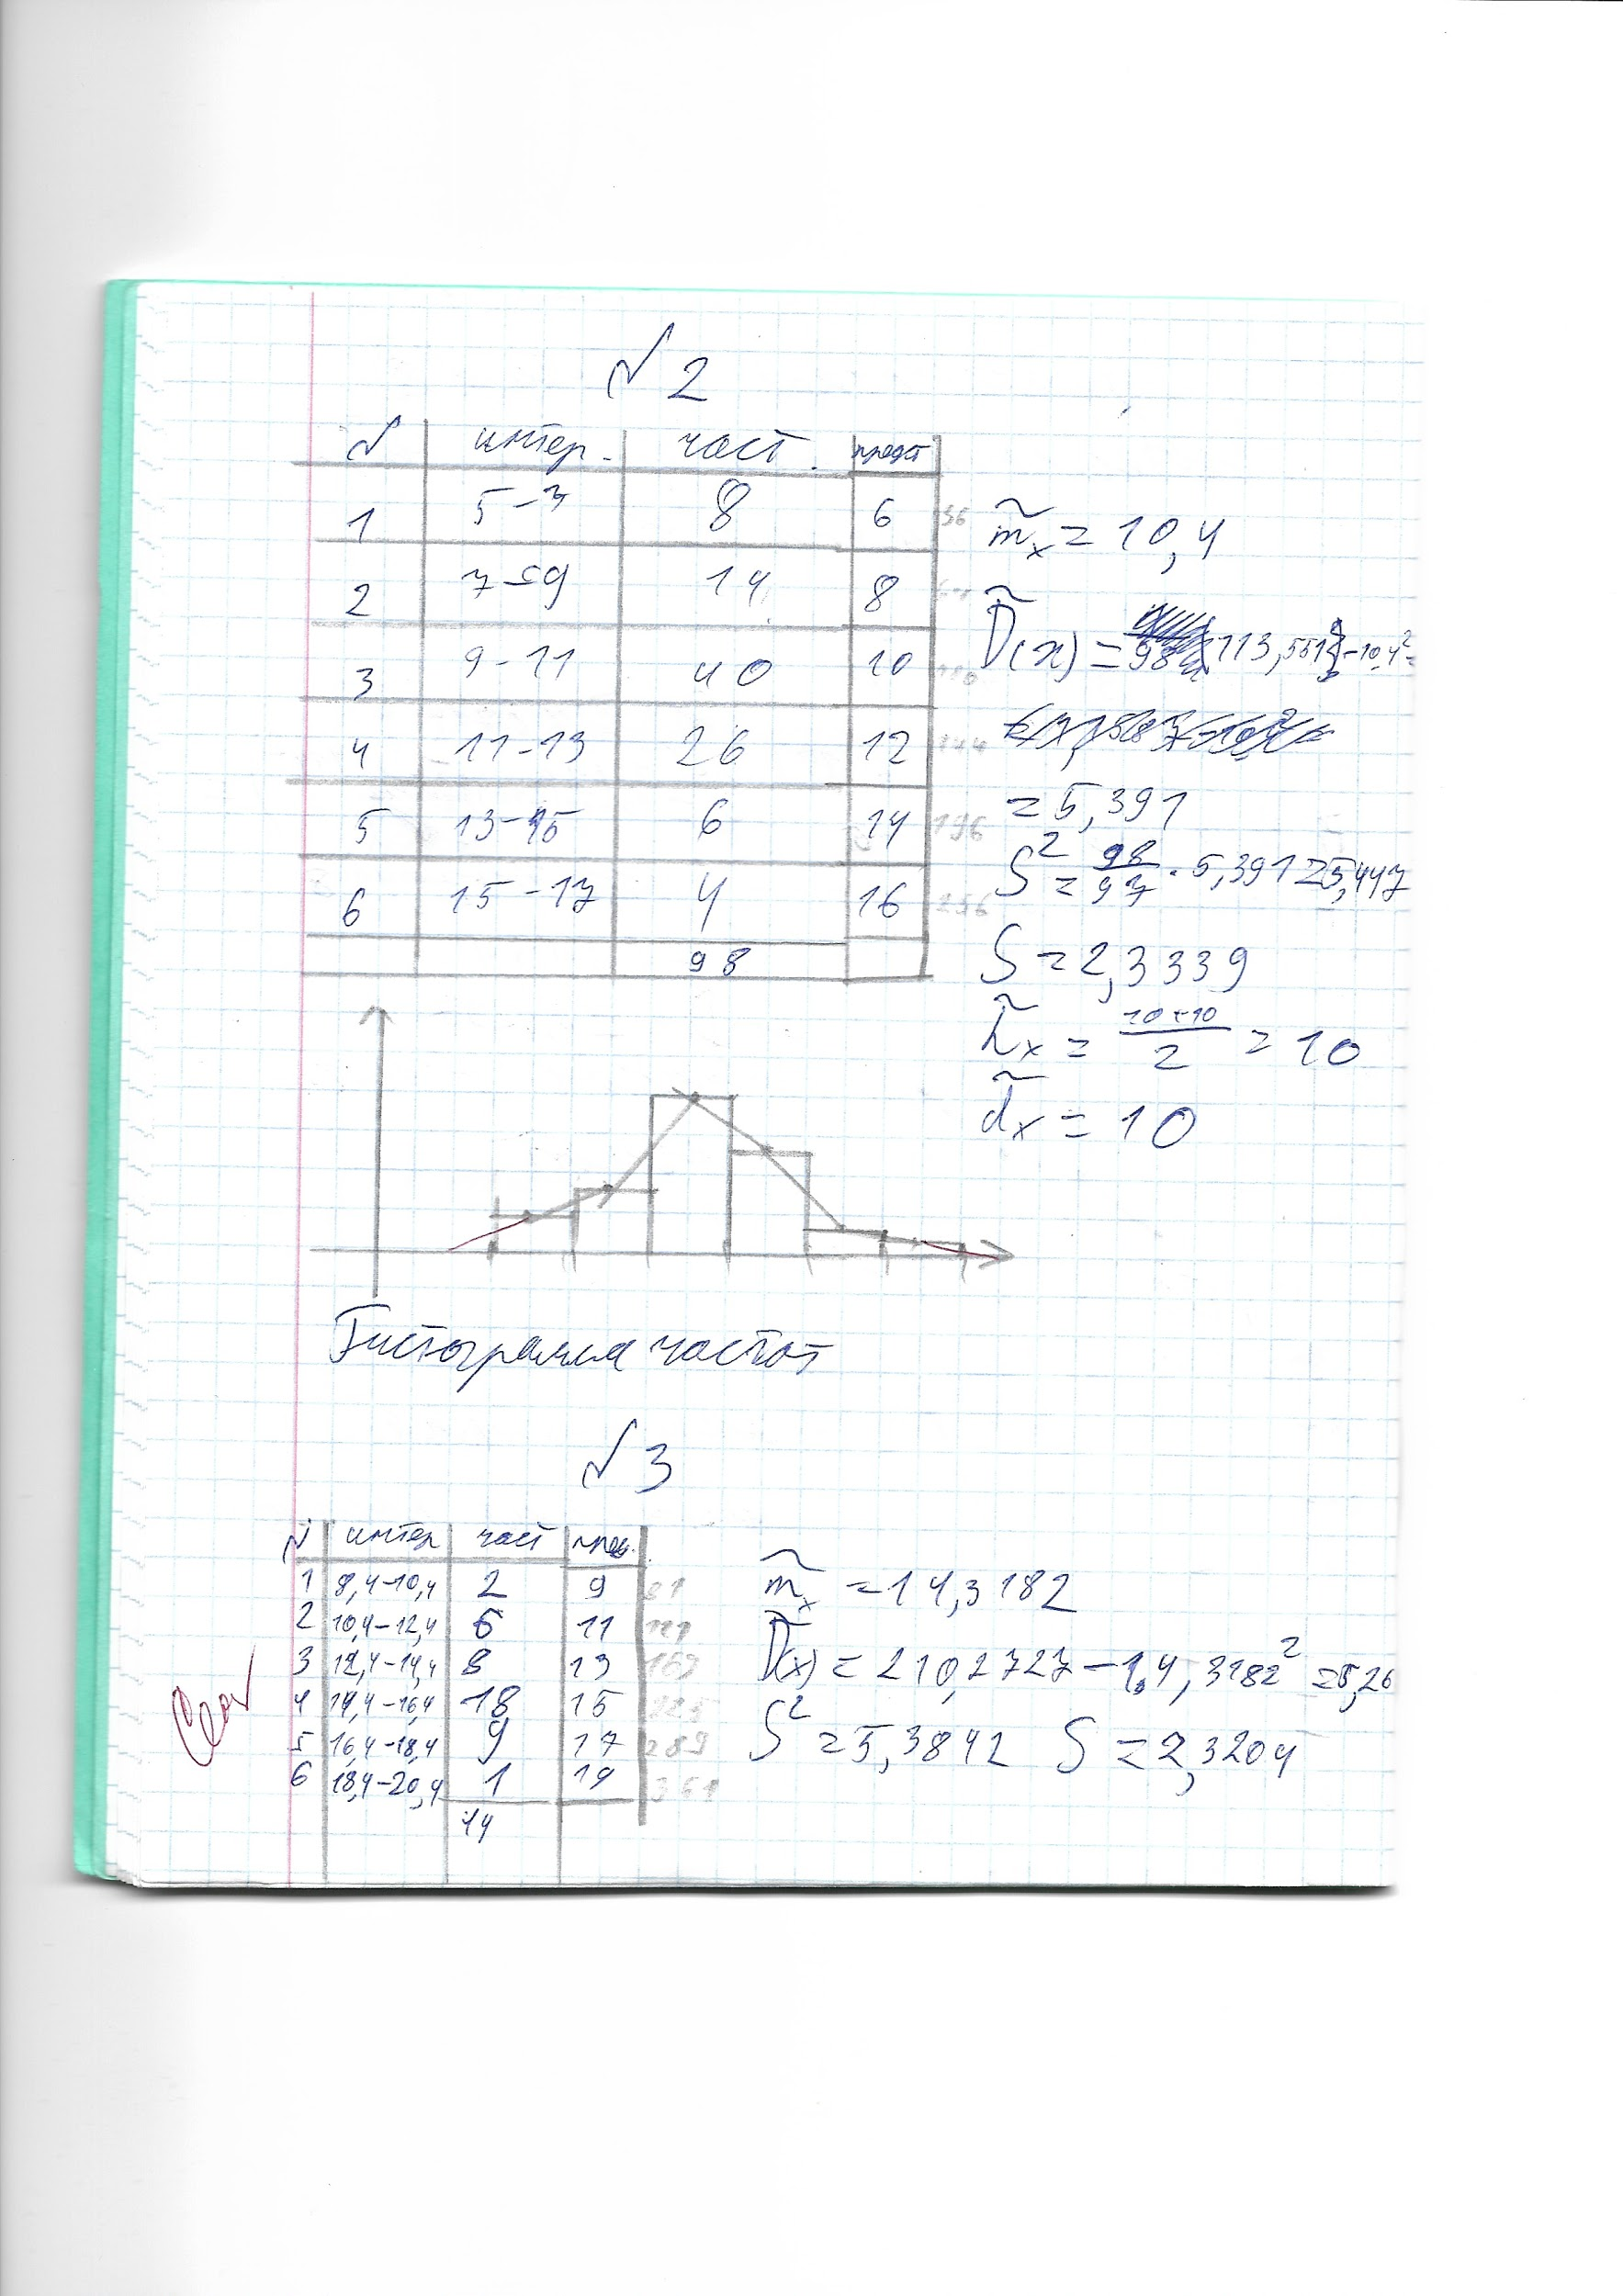 № 2
№ интер. част. предст
1 5-7 8 6 36
2 7-9 14 8
3 9-11 40 10
4 11-13 26 12 144
5 13-15 6 14 196
6 15-17 4 16 256
98
m̃x = 10,4
D̃(x) = 113,5512-10,4² =
= 5,391
S² = 98/97 · 5,391 = 5,447
S = 2,3339
h̃x = (10+10)/2 = 10
d̃x = 10
Гистограмма частот
№ 3
№ интер част пред.
1 8,4-10,4 2 9 81
2 10,4-12,4 6 11 121
3 12,4-14,4 8 13 169
4 14,4-16,4 18 15 225
5 16,4-18,4 9 17 289
6 18,4-20,4 1 19 361
44
m̃x = 14,3182
D̃(x) = 210,2727-14,3182² = 5,26
S² = 5,3842 S = 2,3204